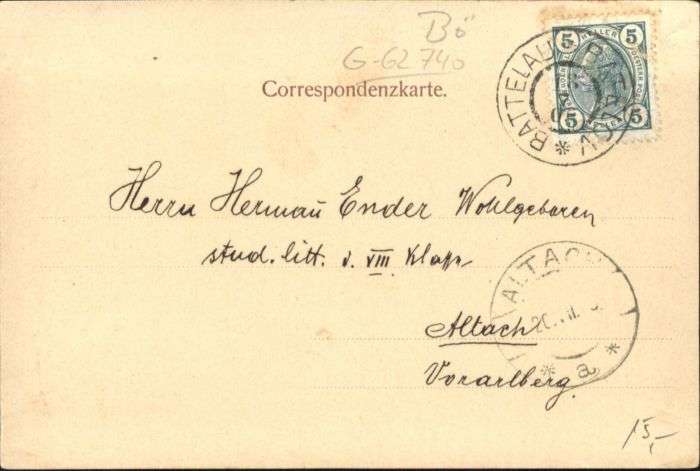 Bö
G-62740
Correspondenzkarte.
5 HELLER 5
5 5
BATTELAU BATELOV
Herrn Herman̄ Ender Wohlgeboren
stud. litt. d. VIII Klasse
ALTACH
20. VII.
Altach
a
Vorarlberg.
15,-